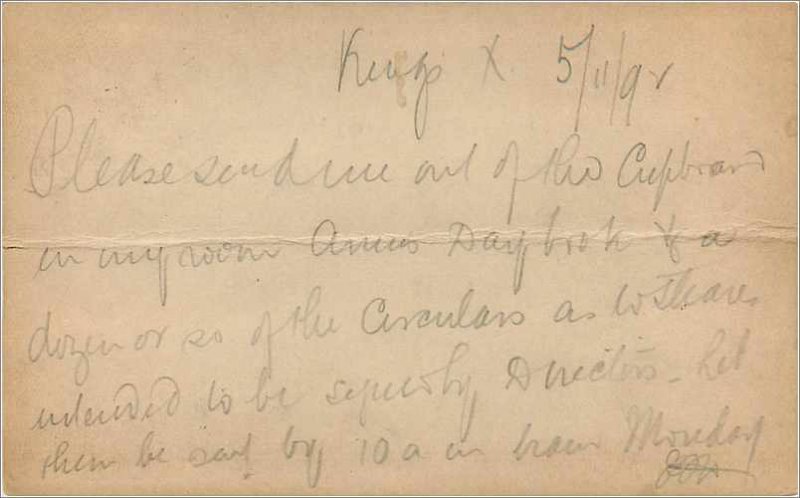 Kings X. 5/11/92
Please send me out of the Cupboard
in my room Day book & a
dozen or so of the Circulars as to Shares
intended to be signed by Directors - Let
them be sent by 10 a m train Monday